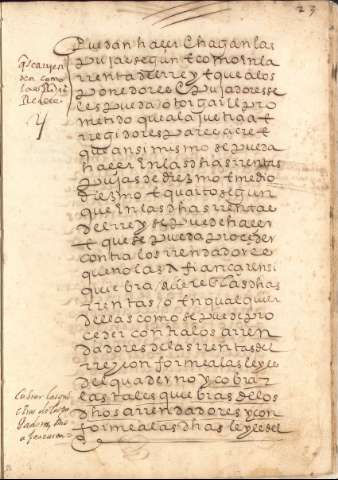 23
Puedan hacer E hagan las
pujas segun E como En la
rrenta del rrey E que a los
ponedores E pujadores se
les pueda otorgar El pro
metido que a la justicia E
rregidores pareciere E
que ansi mismo se pueda
hacer En las dhas rrentas
pujas de diezmo E medio
diezmo E quarto segun
que En las dhas rrentas
del rrey se puede hacer
E que se pueda proceder
contra los rrendadores
que no las afiançaren si
quiebra de las dhas
rrentas o En qualquier
dellas como se puede pro
ceder contra los arren
dadores de las rrentas del
rrey conforme a las leyes
del quaderno y cobrar
las tales quiebras de los
dhos arrendadores y con
forme a las dhas leyes del
como
las